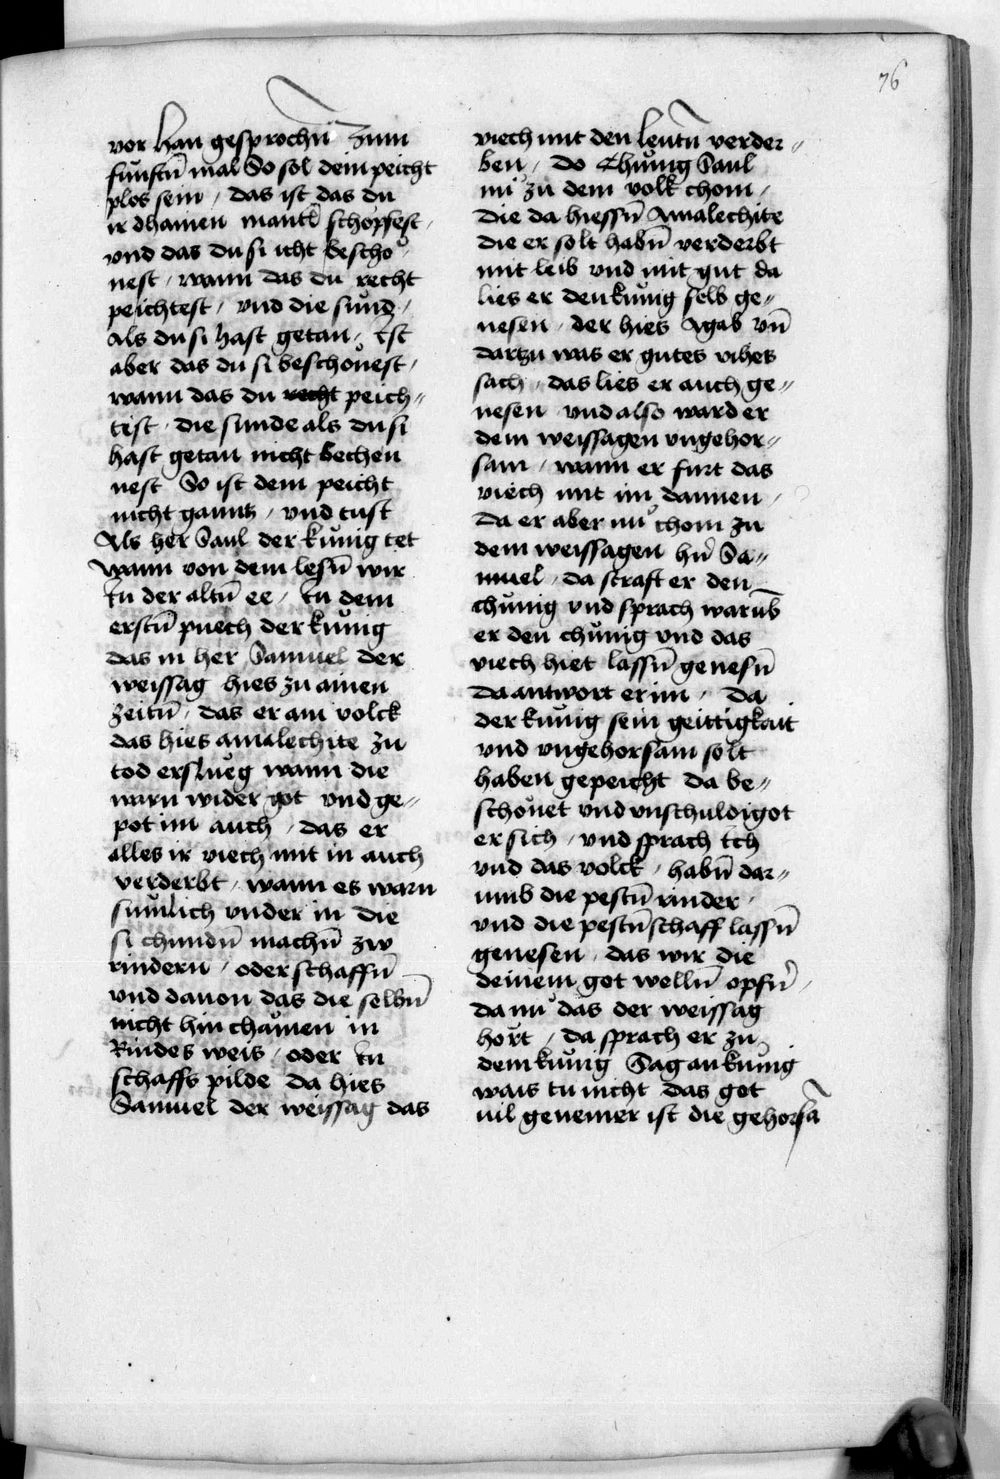 76
vor han gesprochn̄ Zum
funftn̄ mal So sol dein peicht
plos sein / das ist das du
ir dhainen mantl schöpfest /
vnd das du si icht bescho
nest / wann das du recht
peichtest / vnd die sünd /
als du si hast getan / Ist
aber das du si beschönest /
wann das du recht peich⸗
tist / die sunde als du si
hast getan nicht bechen
nest So ist dein peicht
nicht ganntz / vnd tust
Als her Saul der kunig tet
Wann von dem lesn̄ wir
In der altn̄ ee / In dem
erstn̄ puech der kunig
das in her Samuel der
weissag hies zu ainen
Zeitn̄ / das er am volck
das hies amalechite zu
tod erslueg wann die
warn wider got vnd ge⸗
pot im auch / das er
alles ir viech mit in auch
verderbt / wann es warn
sumlich vnder in die
si chundn̄ machn̄ zw
rindern / oder schaffn̄
vnd dauon das die selbn̄
nicht hin chämen in
Rindes weis / oder In
schaffs pilde Da hies
Samuel der weissag das
viech mit den leutn̄ verder⸗
ben / Do Chunig Saul
nu zu dem volk chom /
die da hiessn̄ Amalechite
die er solt habn̄ verderbt
mit leib vnd mit gut da
lies er den kunig selb ge⸗
nesen / der hies Agab vn̄
dartzu was er gutes vihes
sach / das lies er auch ge⸗
nesen vnd also ward er
dem weissagen vngehor⸗
sam / wann er furt das
viech mit im dannen /
Da er aber nu chom zu
dem weissagen hn̄ Sa⸗
muel / da straft er den
chunig vnd sprach warūb
er den chunig vnd das
viech hiet lassn̄ genesn̄
Da antwort er im / Da
der kunig sein geittigkait
vnd vngehorsam solt
haben gepeicht Da be⸗
schonet vnd vnschuldigot
er sich / vnd sprach Ich
vnd das volck / habn̄ dar⸗
umb die pestn̄ rinder /
vnd die pestn̄ schaff lassn̄
genesen / das wir die
deinem got welln̄ opfn̄ /
da nu das der weissag
hort / da sprach er zu
dem kunig Sag an kunig
wais tu nicht das got
vil genemer ist die gehorsā